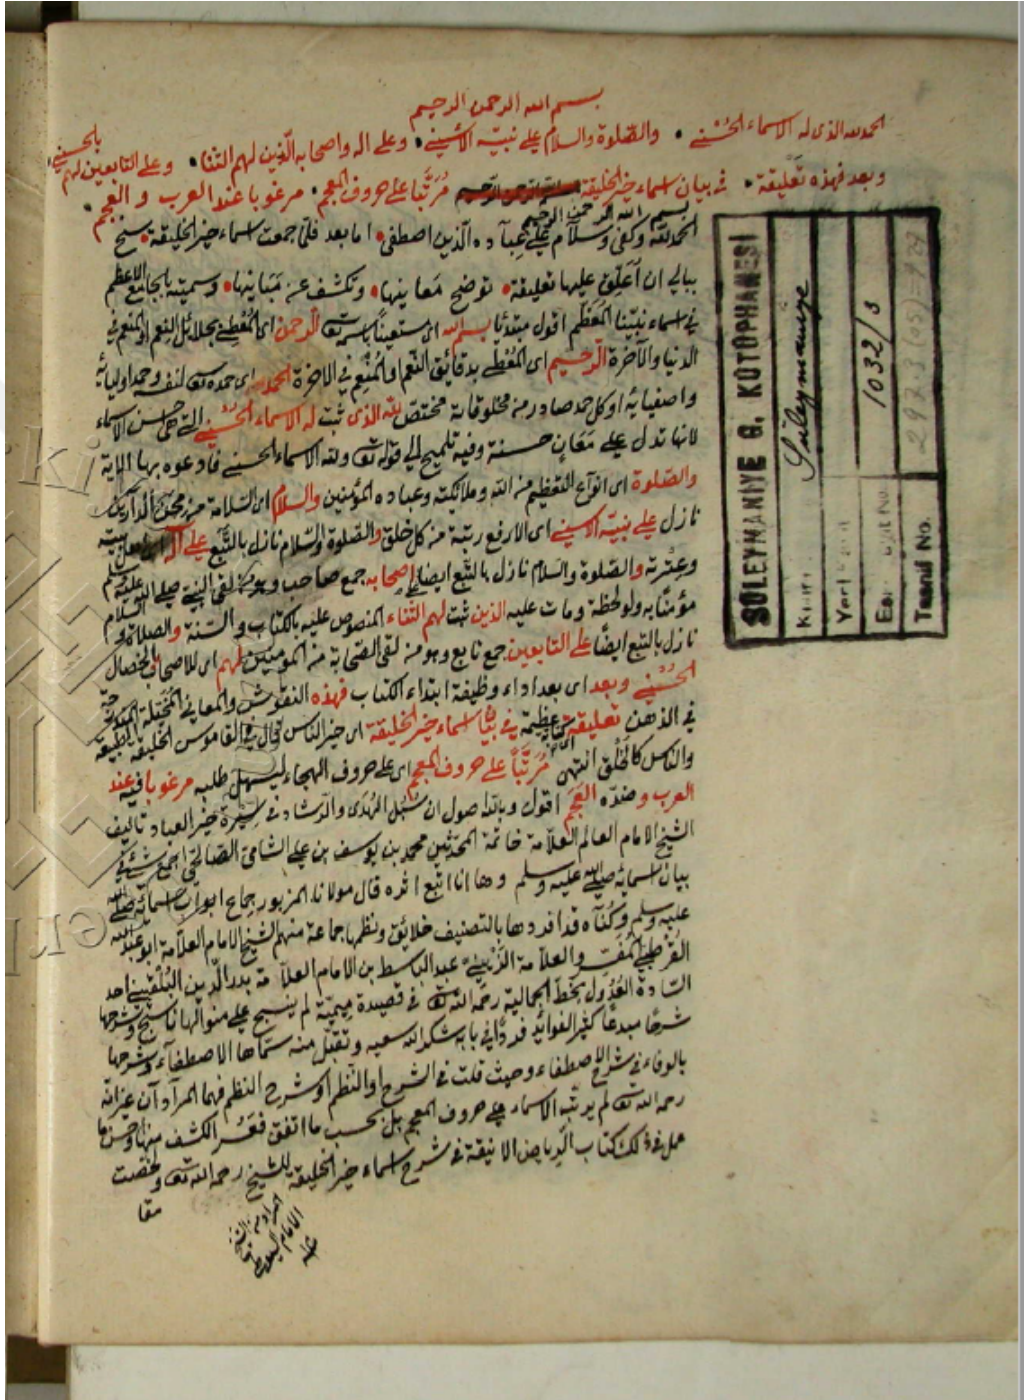 بسم الله الرحمن الرحيم
الحمد لله الذى له الاسماء الحسنى والصلوة والسلام على نبيه الاسنى وعلى اله واصحابه الذين لهم الثنا وعلى التابعين لهم بالحسنى
وبعد فهذه تعليقة فى بيان اسماء خير الخليقة مرتبا على حروف المعجم مرغوبا عند العرب والعجم
بسم الله الرحمن الرحيم
الحمد لله وكفى وسلام على عباده الذين اصطفى اما بعد فلما جمعت اسماء خير الخليقة سنح
ببالى ان اعلق عليها تعليقة توضح معانيها وتكشف عن مبانيها وسميته بالجامع الاعظم
فى اسماء نبينا المعظم اقول مبتدئا بسم الله اى مستعينا باسمه تع الرحمن اى المعطى بجلائل النعم او المنعم فى
الدنيا والآخرة الرحيم اى المعطى بدقائق النعم او المنعم فى الاخرة الحمد اى حمده تع لنفسه وحمد اوليائه
واصفيائه او كل حمد صادر من مخلوقاته مختص لله الذى ثبت له الاسماء الحسنى التى هى احسن الاسماء
لانها تدل على معان حسنة وفيه تلميح الى قوله تع ولله الاسماء الحسنى فادعوه بها الاية
والصلوة اى انواع التعظيم من الله وملائكته وعباده المؤمنين والسلام اى السلامة من محن الدارين
نازل على نبيه الاسنى اى الارفع رتبة من كل خلق والصلوة والسلام نازل بالتبع على اله اى اهل بيته
وعترته والصلوة والسلام نازل بالتبع ايضا على اصحابه جمع صاحب وهو من لقى النبى صلى الله عليه وسلم
مؤمنا به ولو لحظة ومات عليه الذين ثبت لهم الثناء المنصوص عليه بالكتاب والسنة والصلاة والسلام
نازل بالتبع ايضا على التابعين جمع تابع وهو من لقى الصحابة من المؤمنين لهم اى للاصحاب بالخصال
الحسنى وبعد اى بعد اداء وظيفة ابتداء الكتاب فهذه النقوش والمعانى المخيلة
فى الذهن تعليقة عظيمة فى بيان اسماء خير الخليقة اى خير الناس قال فى القاموس الخليقة الطبيعة
والناس كالخلق انتهى مرتبا على حروف المعجم اى على حروف الهجاء ليسهل طلبه مرغوبا فيه عند
العرب وضده العجم اقول وبالله اصول ان سبل الهدى والرشاد فى سيرة خير العباد تاليف
الشيخ الامام العالم العلامة خاتمة المحدثين محمد بن يوسف بن على الشامى الصالحى اجمع شئ فى
بيان اسمائه صلى الله عليه وسلم وها انا اتبع اثره قال مولانا المزبور جماع ابواب اسمائه صلى الله
عليه وسلم وكناه قد افردها بالتصنيف خلائق ونظمها جماعة منهم الشيخ الامام العلامة ابو عبد الله
القرطبى المفسر والعلامة الزينى عبد الباسط بن الامام العلامة بدر الدين البلقينى احد
السادة العدول بخط الجمالية رحمه الله تع فى قصيدة ميمية لم ينسج على منوالها ناسج وشرحها
شرحا مبدعا كثير الفوائد فردا فى بابه شكر الله سعيه وتقبل منه سماها الاصطفاء وشرحها
بالوفاء فى شرح الاصطفاء وحيث قلت فى الشرح او النظم او شرح النظم فهما المراد ان غير انه
رحمه الله تع لم يرتب الاسماء على حروف المعجم بل بحسب ما اتفق فعسر الكشف منها واحسن ما
عمل فى ذلك كتاب الرياض الانيقة فى شرح اسماء خير الخليقة للشيخ رحمه الله تع ولخصت
مقا
المراد من الشيخ
الامام السيوطى
SÜLEYMANİYE G. KÜTÜPHANESİ
Süleymaniye
1032/3
297.3 (05)=927
Tasnif No.